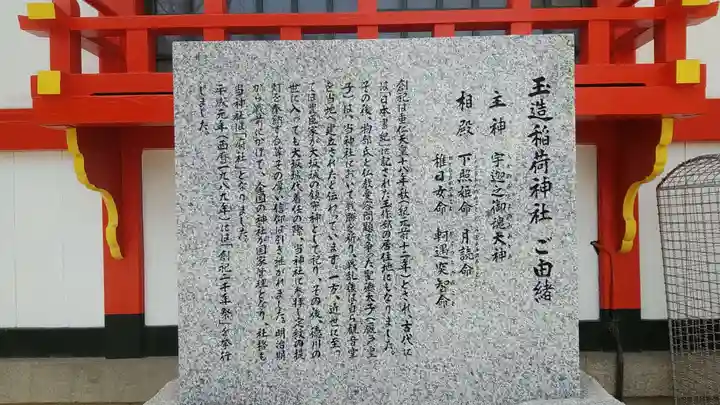 玉造稲荷神社 ご由緒
主神 宇迦之御魂大神
相殿 下照姫命 月読命
稚日女命 軻遇突智命
創祀は垂仁天皇十八年秋（紀元前十二年）とされ、古代に
は「日本書紀」に記された玉作部の居住地にもなりました。
その後、物部氏と仏教受容問題で争った聖徳太子（厩戸皇
子）は、当神社において戦勝を祈り、戦乱後は自ら観音堂
を当地へ建立されたと伝わっています。一方、近世に至っ
ては豊臣家が大坂城の鎮守神として祀り、その後、徳川の
世に入っても大坂城代着任の際、当神社に参拝し定紋の提
灯を奉納する等その厚い信仰は引き継がれました。明治期
から戦前にかけて、全国の神社が国家管理となり、社格も
当神社は「府社」となりました。
平成元年（西暦一九八九年）には「創祀二千年祭」を斎行
しました。